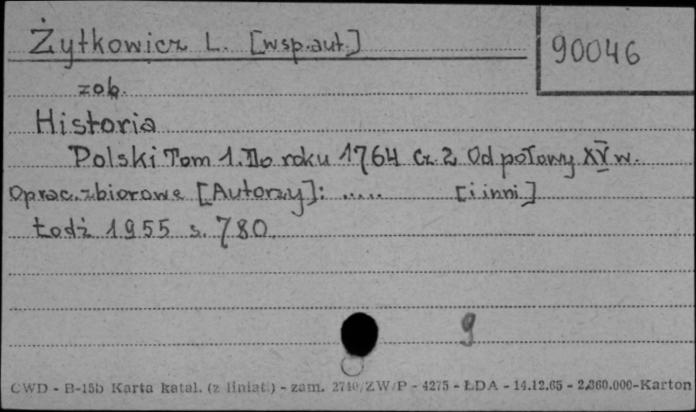 Żytkowicz L. [wsp.aut.]
90046
zob.
Historia
Polski Tom 1. Do roku 1764 Cz. 2 Od połowy XV w.
Oprac. zbiorowe [Autorzy]: ..... [i inni]
Łodź 1955 s. 780.
9
CWD - B-15b Karta katal. (z liniat.) - zam. 2740/ZW/P - 4275 - ŁDA - 14.12.65 - 2.360.000-Karton